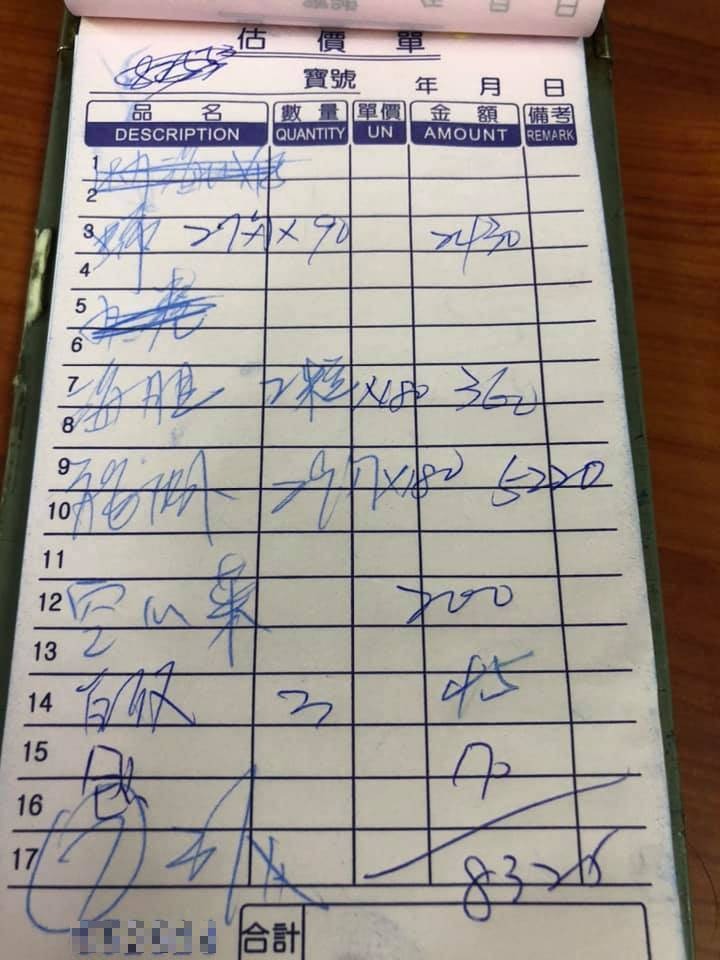 估價單
寶號 年 月 日
品名 數量 單價 金額 備考
DESCRIPTION QUANTITY UN AMOUNT REMARK
1
2
3 27 × 90 2430
4
5
6
7 海膽 2粒 ×180 360
8
9 29 ×180 5220
10
11
12 空心菜 200
13
14 白飯 3 45
15 70
16
17 8325
合計